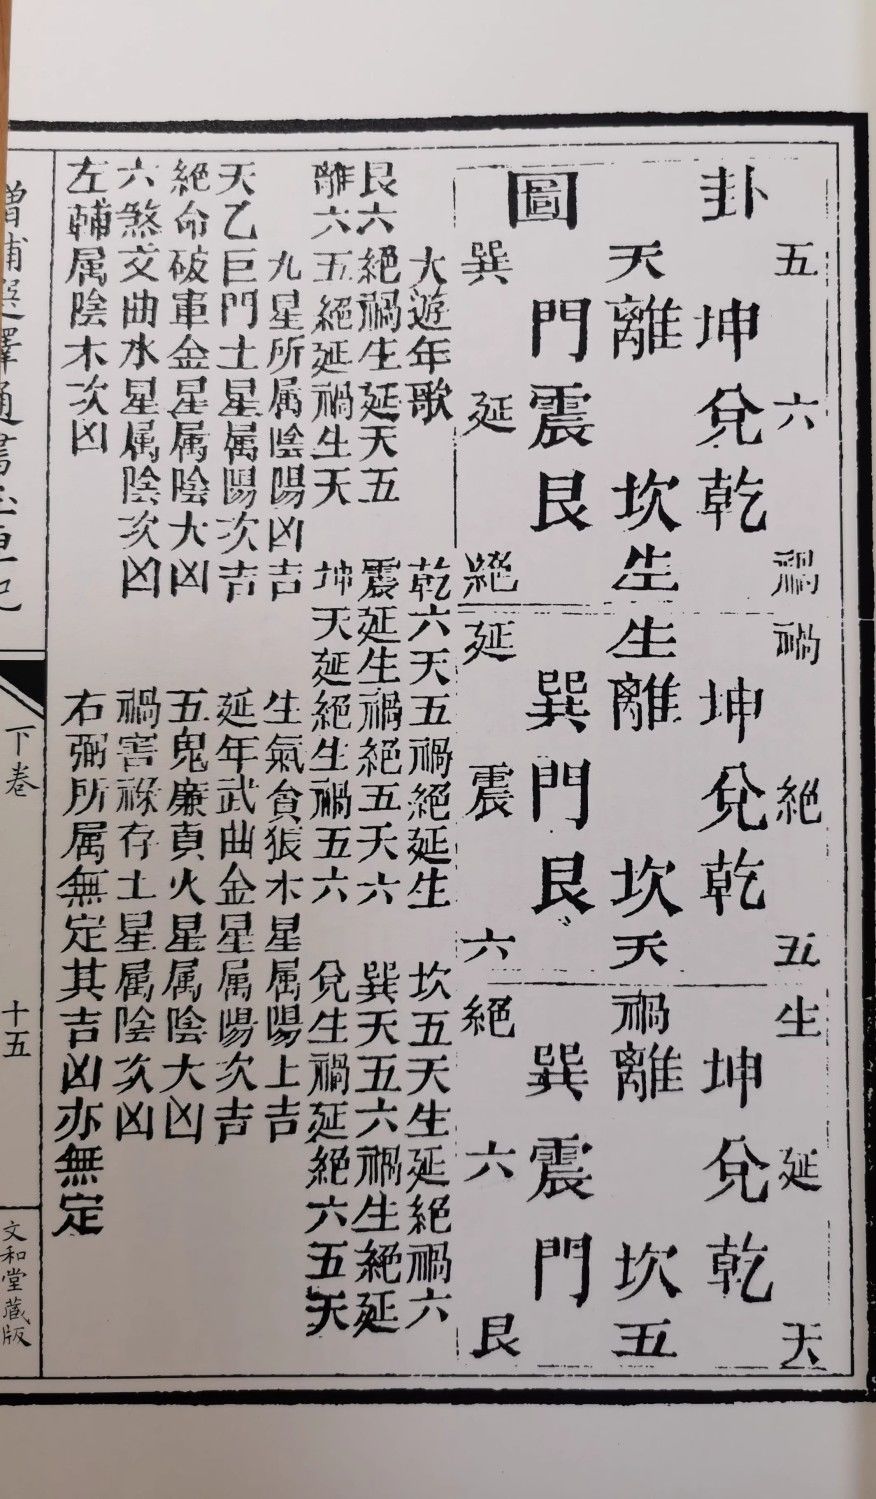 卦
圖
五 六 禍
坤兌乾
天離 坎生
門震艮
巽 延 絕
禍 絕 五
坤兌乾
生離 坎天
巽門艮
延 震 六
生 延 天
坤兌乾
禍離 坎五
巽震門
絕 六 艮
大遊年歌 乾六天五禍絕延生 坎五天生延絕禍六
艮六絕禍生延天五 震延生禍絕五天六 巽天五六禍生絕延
離六五絕延禍生天 坤天延絕生禍五六 兌生禍延絕六五天
九星所属陰陽凶吉 生氣貪狼木星属陽上吉
天乙巨門土星属陽次吉 延年武曲金星属陽次吉
絕命破軍金星属陰大凶 五鬼廉貞火星属陰大凶
六煞文曲水星属陰次凶 禍害祿存土星属陰次凶
左輔属陰木次凶 右弼所属無定其吉凶亦無定
增補選擇通書玉匣記 下卷 十五 文和堂藏版